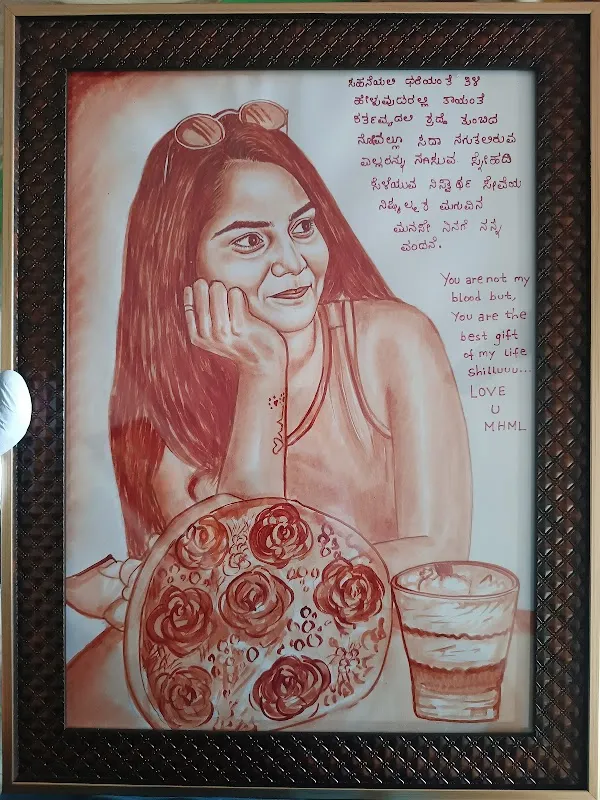 ಸಹನೆಯಲಿ ಧರೆಯಂತೆ ತಿಳಿ
ಹೇಳುವುದರಲ್ಲಿ ತಾಯಂತೆ
ಕರ್ತವ್ಯದಲಿ ಶ್ರದ್ಧೆ ತುಂಬಿದ
ನೋವೆಲ್ಲೂ ಸದಾ ನಗುತಲಿರುವ
ಎಲ್ಲರನ್ನು ನಗಿಸುವ ಸ್ನೇಹದಿ
ಸೆಳೆಯುವ ನಿಸ್ವಾರ್ಥ ಸೇವೆಯ
ನಿಷ್ಕಲ್ಮಶ ಮಗುವಿನ
ಮನಸೇ ನಿನಗೆ ನನ್ನ
ವಂದನೆ.
You are not my
blood but,
You are the
best gift
of my Life
Shilluuu...
LOVE
U
MHML